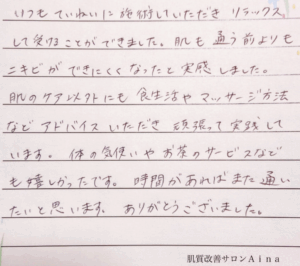 いつもていねいに施術していただき リラックス
して受けることができました。肌も通う前よりも
ニキビができにくくなったと実感しました。
肌のケア以外にも食生活やマッサージ方法
などアドバイスいただき 頑張って実践して
います。体の気使いやお茶のサービスなど
も嬉しかったです。時間があればまた通い
たいと思います。ありがとうございました。
肌質改善サロンAina